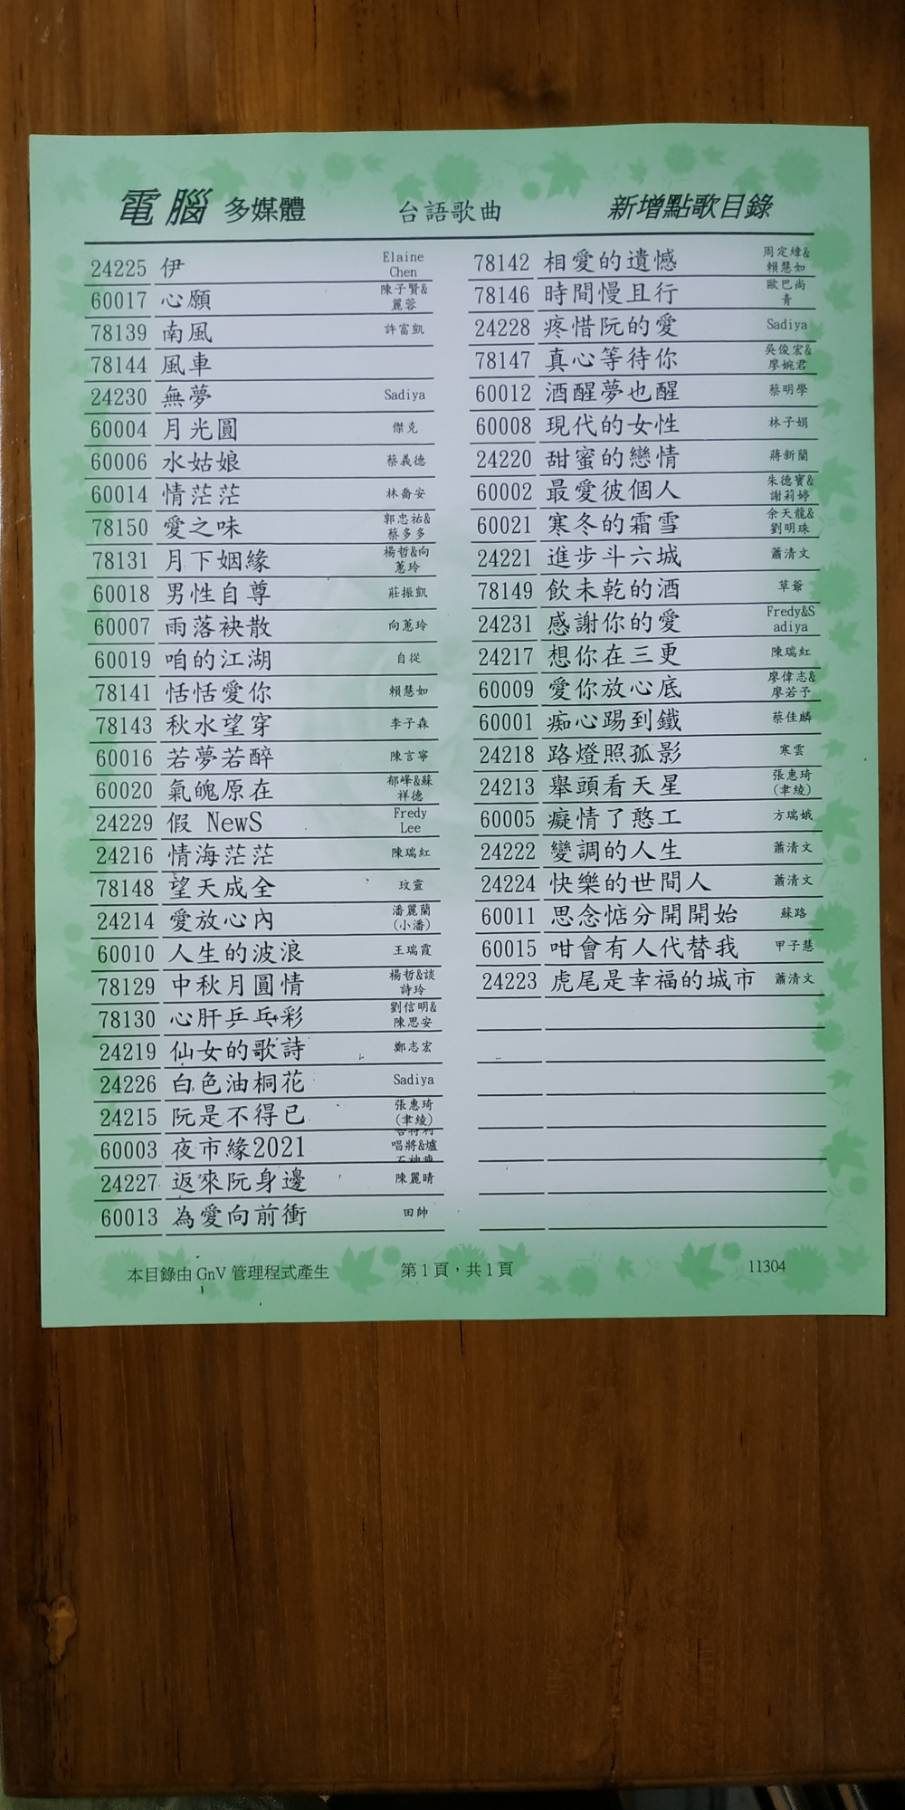 電腦 多媒體 台語歌曲 新增點歌目錄
24225 伊 Elaine Chen
60017 心願 陳子賢&麗蓉
78139 南風 許富凱
78144 風車
24230 無夢 Sadiya
60004 月光圓 傑克
60006 水姑娘 蔡義德
60014 情茫茫 林喬安
78150 愛之味 郭忠祐&蔡多多
78131 月下姻緣 楊哲&向蕙玲
60018 男性自尊 莊振凱
60007 雨落袂散 向蕙玲
60019 咱的江湖 自從
78141 恬恬愛你 賴慧如
78143 秋水望穿 李子森
60016 若夢若醉 陳言寧
60020 氣魄原在 郁峰&蘇祥德
24229 假 NewS Fredy Lee
24216 情海茫茫 陳瑞紅
78148 望天成全 玟靈
24214 愛放心內 潘麗蘭(小潘)
60010 人生的波浪 王瑞霞
78129 中秋月圓情 楊哲&談詩玲
78130 心肝乒乓彩 劉信明&陳思安
24219 仙女的歌詩 鄭志宏
24226 白色油桐花 Sadiya
24215 阮是不得已 張惠琦(聿綾)
60003 夜市緣2021 唱將&爐
24227 返來阮身邊 陳麗晴
60013 為愛向前衝 田帥
78142 相愛的遺憾 周定緯&賴慧如
78146 時間慢且行 歐巴尚青
24228 疼惜阮的愛 Sadiya
78147 真心等待你 吳俊宏&廖婉君
60012 酒醒夢也醒 蔡明學
60008 現代的女性 林子娟
24220 甜蜜的戀情 蔣新蘭
60002 最愛彼個人 朱德寶&謝莉婷
60021 寒冬的霜雪 余天龍&劉明珠
24221 進步斗六城 蕭清文
78149 飲未乾的酒 草爺
24231 感謝你的愛 Fredy&Sadiya
24217 想你在三更 陳瑞紅
60009 愛你放心底 廖偉志&廖若予
60001 痴心踢到鐵 蔡佳麟
24218 路燈照孤影 寒雲
24213 舉頭看天星 張惠琦(聿綾)
60005 癡情了憨工 方瑞娥
24222 變調的人生 蕭清文
24224 快樂的世間人 蕭清文
60011 思念惦分開開始 蘇路
60015 咁會有人代替我 甲子慧
24223 虎尾是幸福的城市 蕭清文
本目錄由 GnV 管理程式產生 第 1 頁，共 1 頁 11304